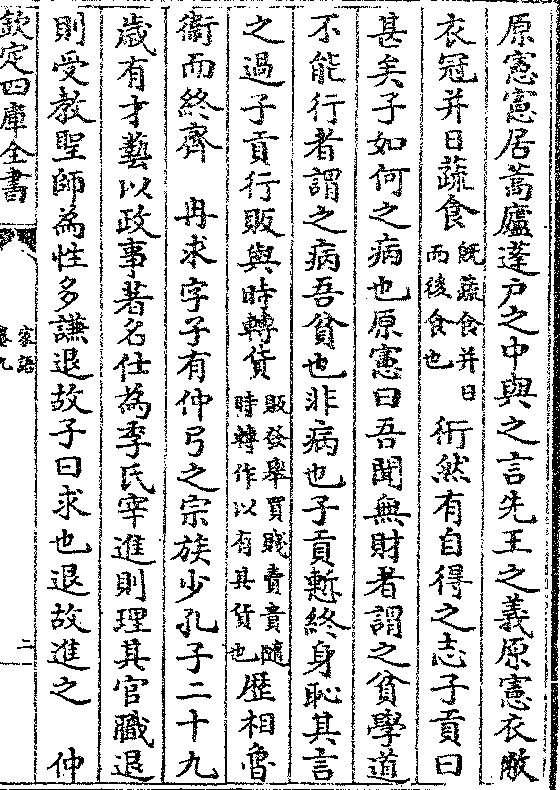 原憲憲居蒿廬蓬戸之中與之言先王之義原憲衣敝
衣冠并日蔬食既蔬食并日而後食也衎然有自得之志子貢曰
甚矣子如何之病也原憲曰吾聞無財者謂之貧學道
不能行者謂之病吾貧也非病也子貢慙終身恥其言
之過子貢行販與時轉貨販發舉買賤賣貴隨時轉作以有其貨也歴相魯
衞而終齊 冉求字子有仲弓之宗族少孔子二十九
歳有才藝以政事著名仕為季氏宰進則理其官職退
則受教聖師為性多謙退故子曰求也退故進之 仲
欽定四庫全書
家語
卷九
二